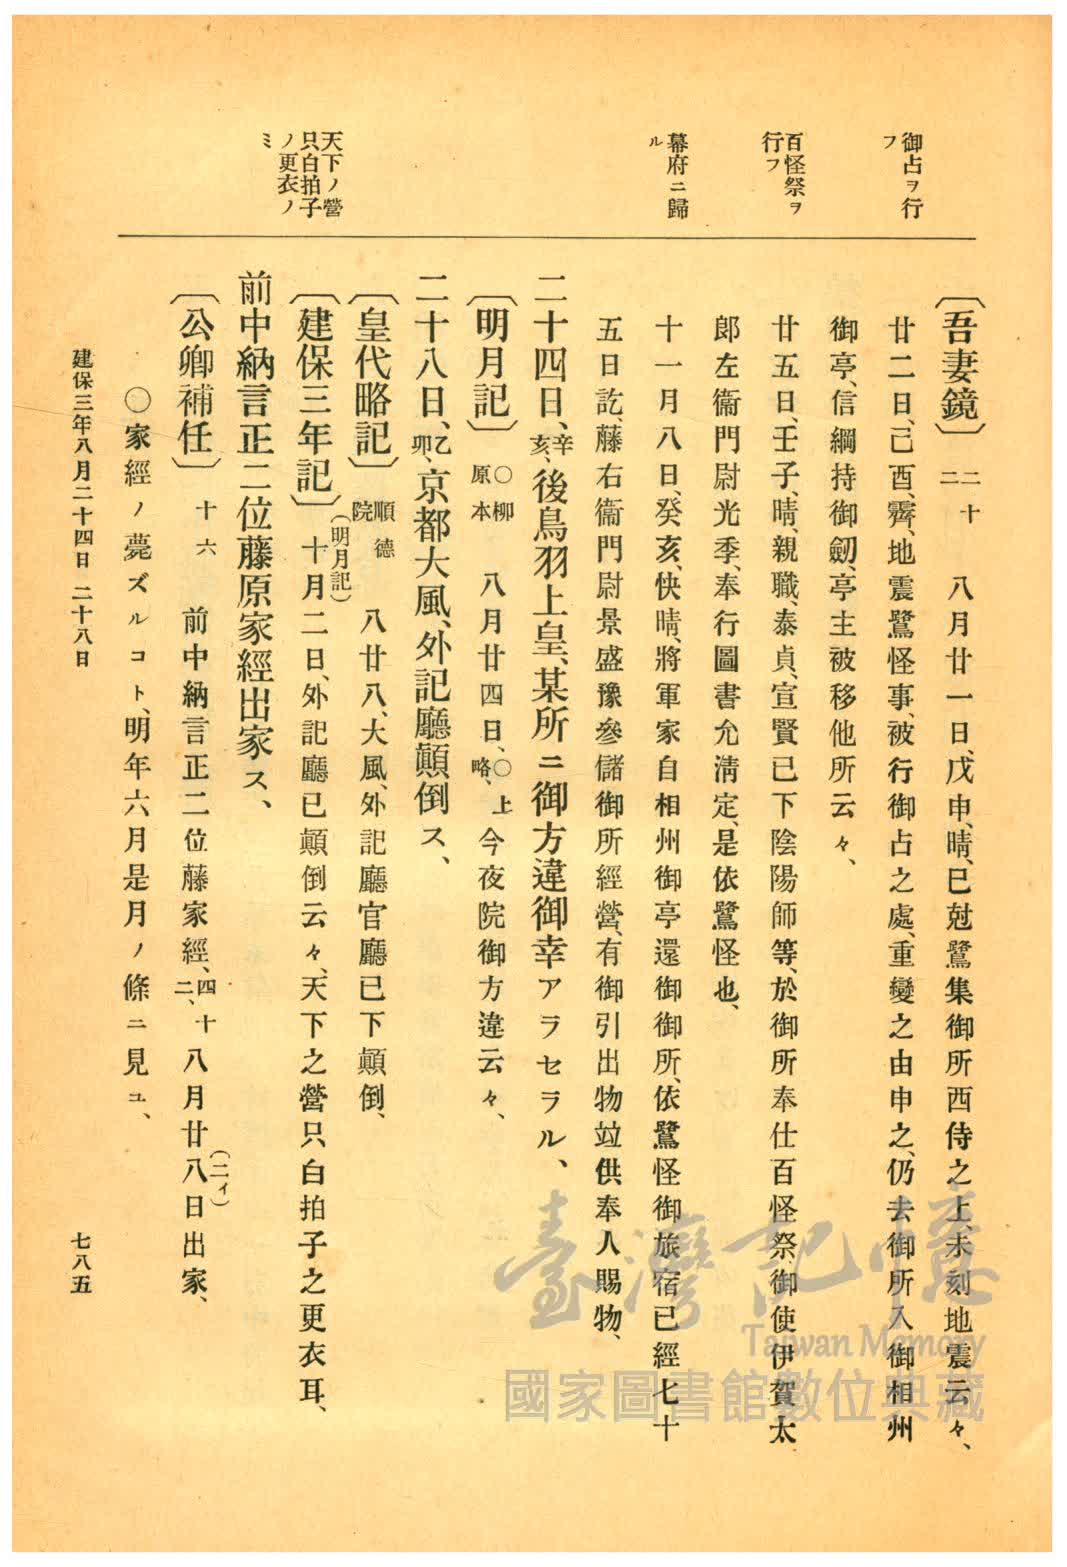 御占ヲ行
フ
百怪祭ヲ
行フ
幕府ニ歸
ル
天下ノ營
只白拍子
ノ更衣ノ
ミ
〔吾妻鏡〕二十二 八月廿一日、戊申、晴、巳尅鷺集御所西侍之上、未刻地震云々、
廿二日、己酉、霽、地震鷺怪事、被行御占之處、重變之由申之、仍去御所入御相州
御亭、信綱持御劔、亭主被移他所云々、
廿五日、壬子、晴、親職、泰貞、宣賢已下陰陽師等、於御所奉仕百怪祭、御使伊賀太
郎左衞門尉光季、奉行圖書允淸定、是依鷺怪也、
十一月八日、癸亥、快晴、將軍家自相州御亭還御御所、依鷺怪御旅宿已經七十
五日訖、藤右衞門尉景盛豫參儲御所經營、有御引出物竝供奉人賜物、
二十四日、辛亥、後鳥羽上皇、某所ニ御方違御幸アラセラル、
〔明月記〕○柳原本 八月廿四日、○上略、今夜院御方違云々、
二十八日、乙卯、京都大風、外記廳顚倒ス、
〔皇代略記〕順德院 八廿八、大風、外記廳官廳已下顚倒、
〔建保三年記〕(明月記) 十月二日、外記廳已顚倒云々、天下之營只白拍子之更衣耳、
前中納言正二位藤原家經出家ス、
〔公卿補任〕十六 前中納言正二位藤家經、四十二、八月廿八(二イ)日出家、
○家經ノ薨ズルコト、明年六月是月ノ條ニ見ユ、
建保三年八月二十四日 二十八日
七八五
臺灣記憶
Taiwan Memory
國家圖書館數位典藏